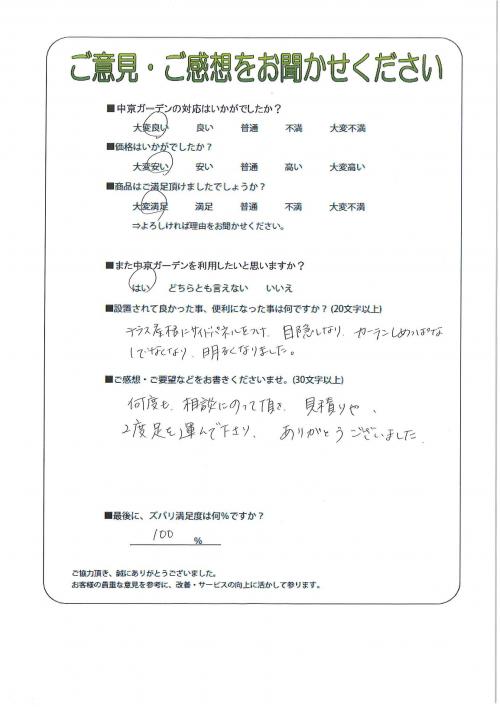 ご意見・ご感想をお聞かせください
■中京ガーデンの対応はいかがでしたか？
大変良い 良い 普通 不満 大変不満
■価格はいかがでしたか？
大変安い 安い 普通 高い 大変高い
■商品はご満足頂けましたでしょうか？
大変満足 満足 普通 不満 大変不満
⇒よろしければ理由をお聞かせください。
■また中京ガーデンを利用したいと思いますか？
はい どちらとも言えない いいえ
■設置されて良かった事、便利になった事は何ですか？(20文字以上)
テラス屋根にサイドパネルをつけ、目隠しなり、カーテンしめっぱな
しでなくなり、明るくなりました。
■ご感想・ご要望などをお書きくださいませ。(30文字以上)
何度も、相談にのって頂き、見積りや、
2度足を運んで下さり、ありがとうございました。
■最後に、ズバリ満足度は何％ですか？
100 %
ご協力頂き、誠にありがとうございました。
お客様の貴重な意見を参考に、改善・サービスの向上に活かして参ります。